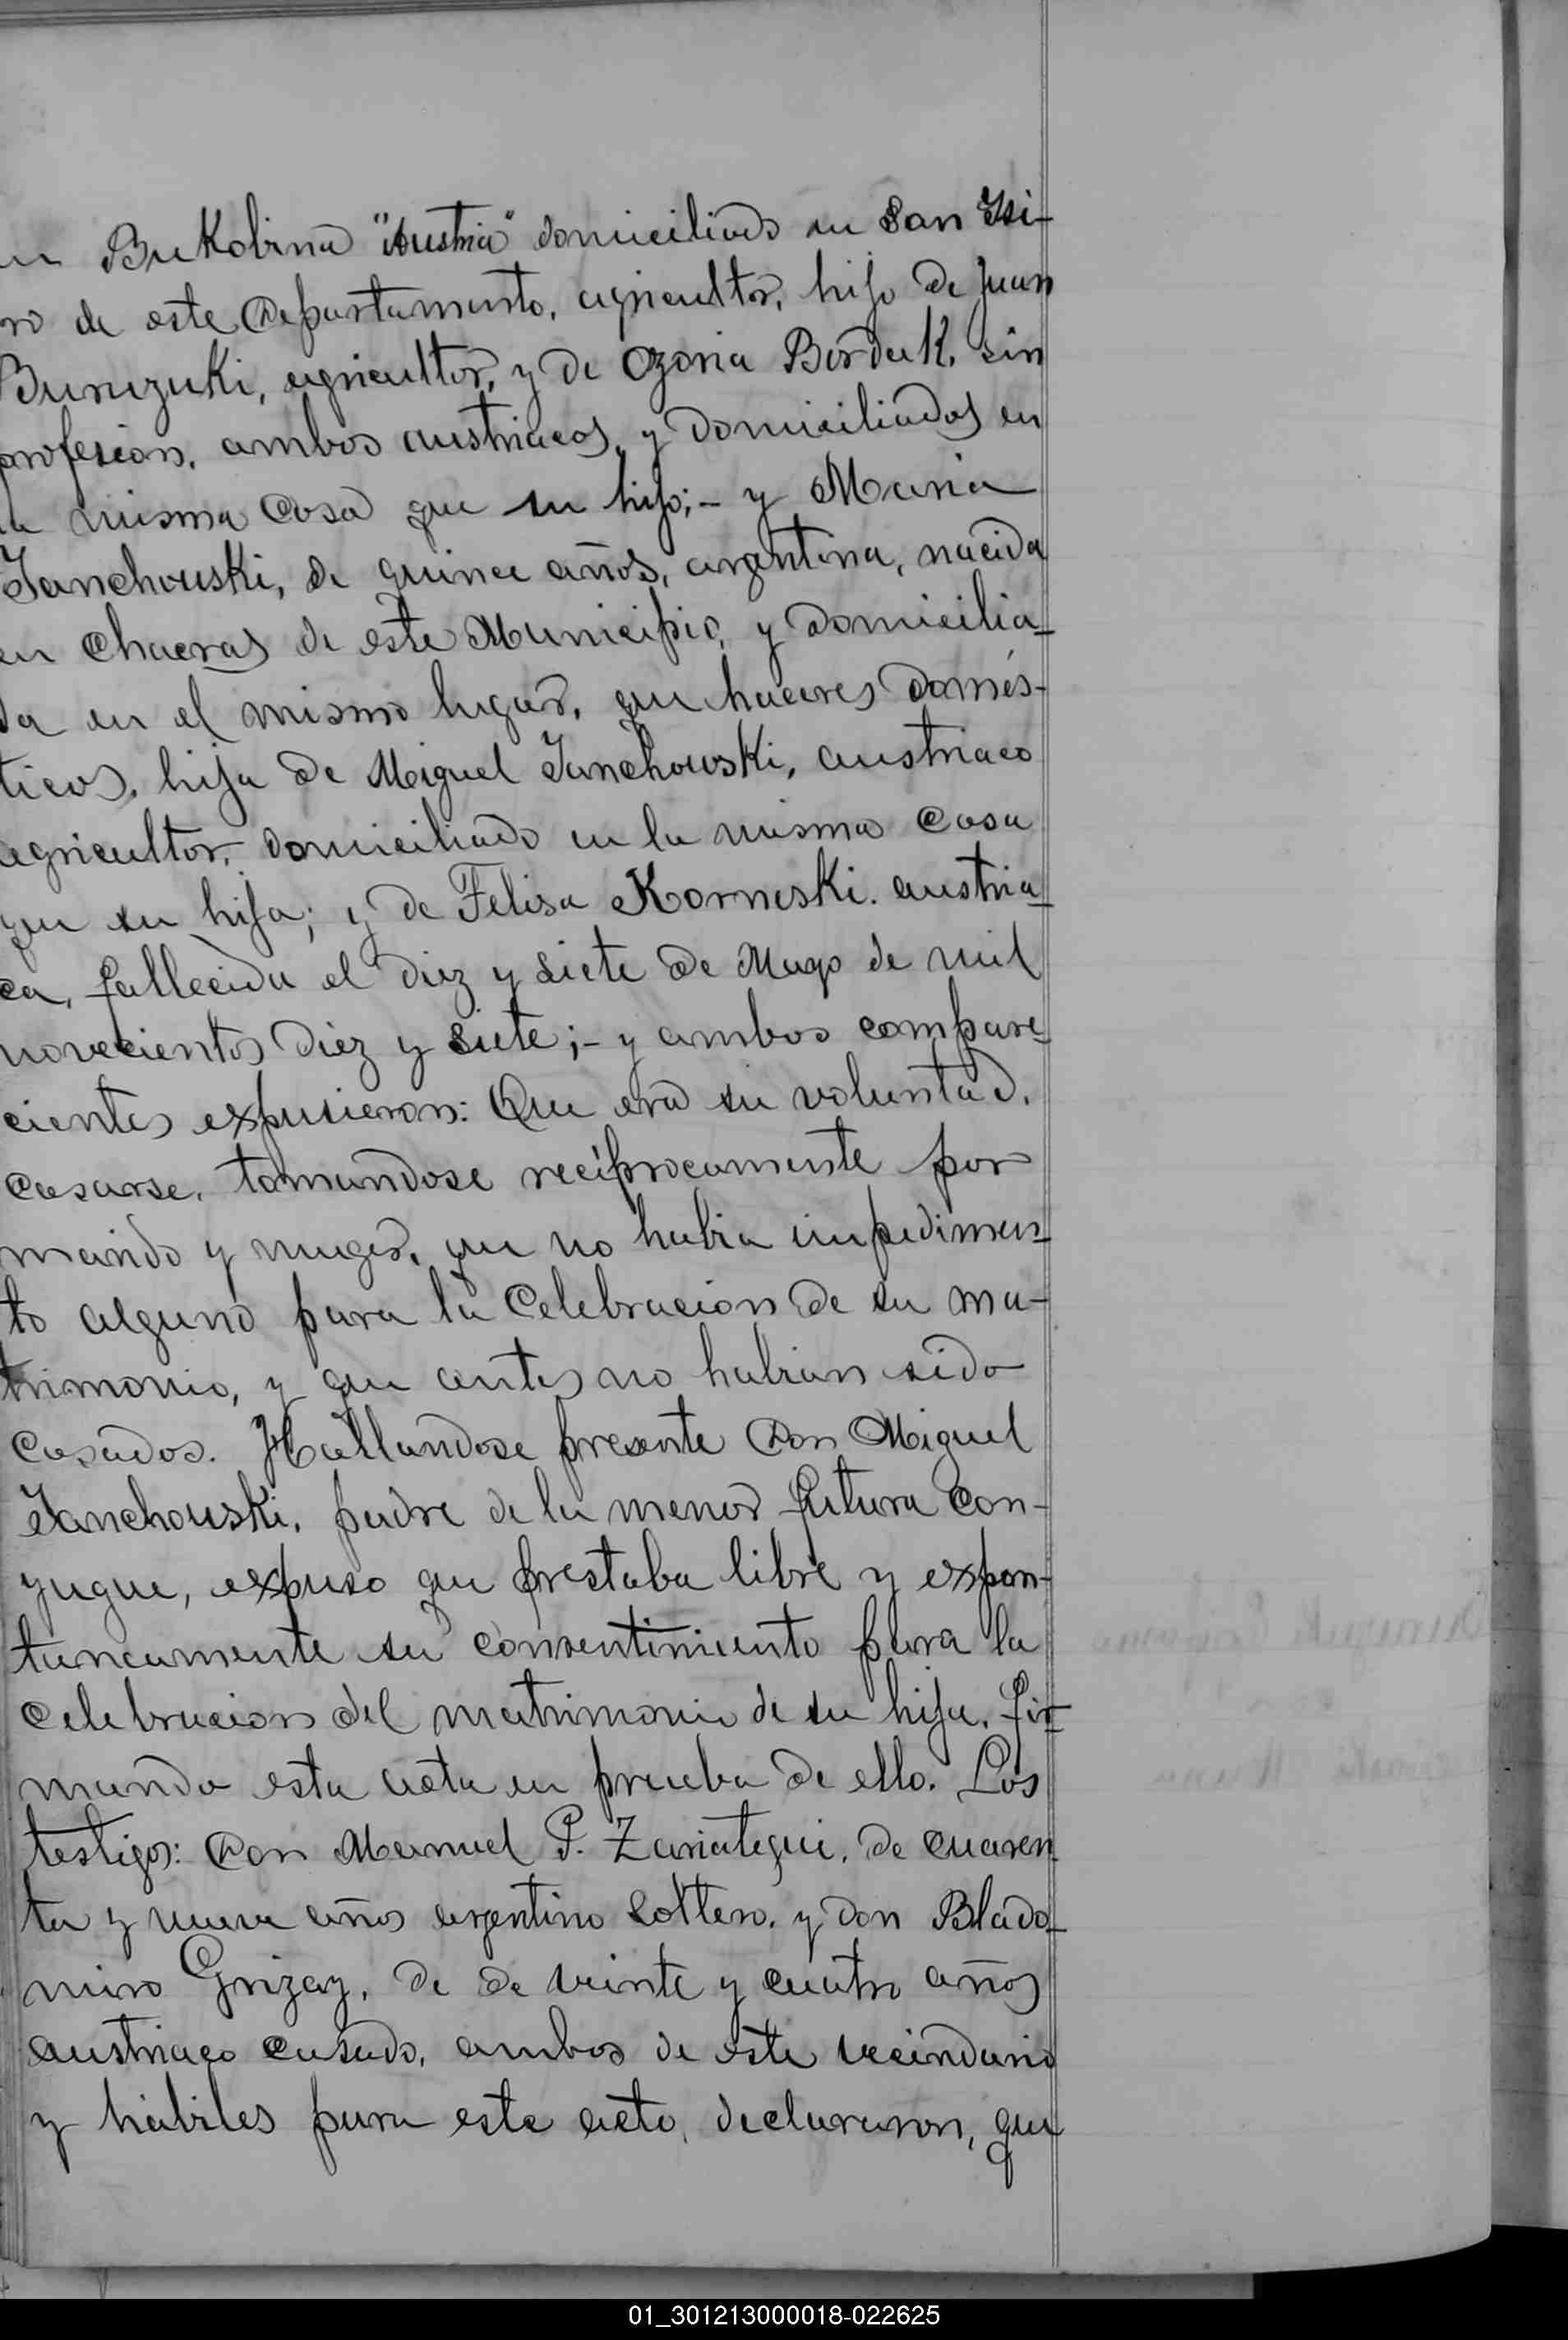 en BuKobina "Austria" domiciliado en San Isi-
ro de este Departamento, agricultor, hijo de Juan
Buruzuki, agricultor, y de Ozoria BorduK, sin
profesion, ambos austriacos, y domiciliados en
la misma Casa que su hijo;- y Maria
Ianchouski, de quince años, argentina, nacida
en Chacras de este Municipio, y domicilia-
da en el mismo lugar, que haceres domés-
ticos, hija de Miguel Ianchouski, austriaco
agricultor, domiciliado en la misma Casa
que su hija; y de Felisa Korneski. austria-
ca, fallecida el diez y siete de Mayo de mil
novecientos diez y siete;- y ambos compare-
cientes expusieron: Que era su voluntad,
casarse, tomandose recíprocamente por
marido y muger, que no habia impedimen-
to alguno para la Celebracion de su ma-
trimonio, y que antes no habian sido
Casados. Hallandose presente Don Miguel
Ianchouski, padre de la menor futura Con-
yugue, expuso que prestaba libre y expon-
taneamente su consentimiento para la
Celebracion del matrimonio de su hija, fir-
mando esta acta en prueba de ello. Los
testigos: Don Manuel P. Zariategui, de cuaren-
ta y nueve años argentino soltero, y don Blado-
miro Grizay, de de veinte y cuatro años
austriaco casado, ambos de este vecindario
y hábiles para este acto, declararon, que
01_301213000018-022625